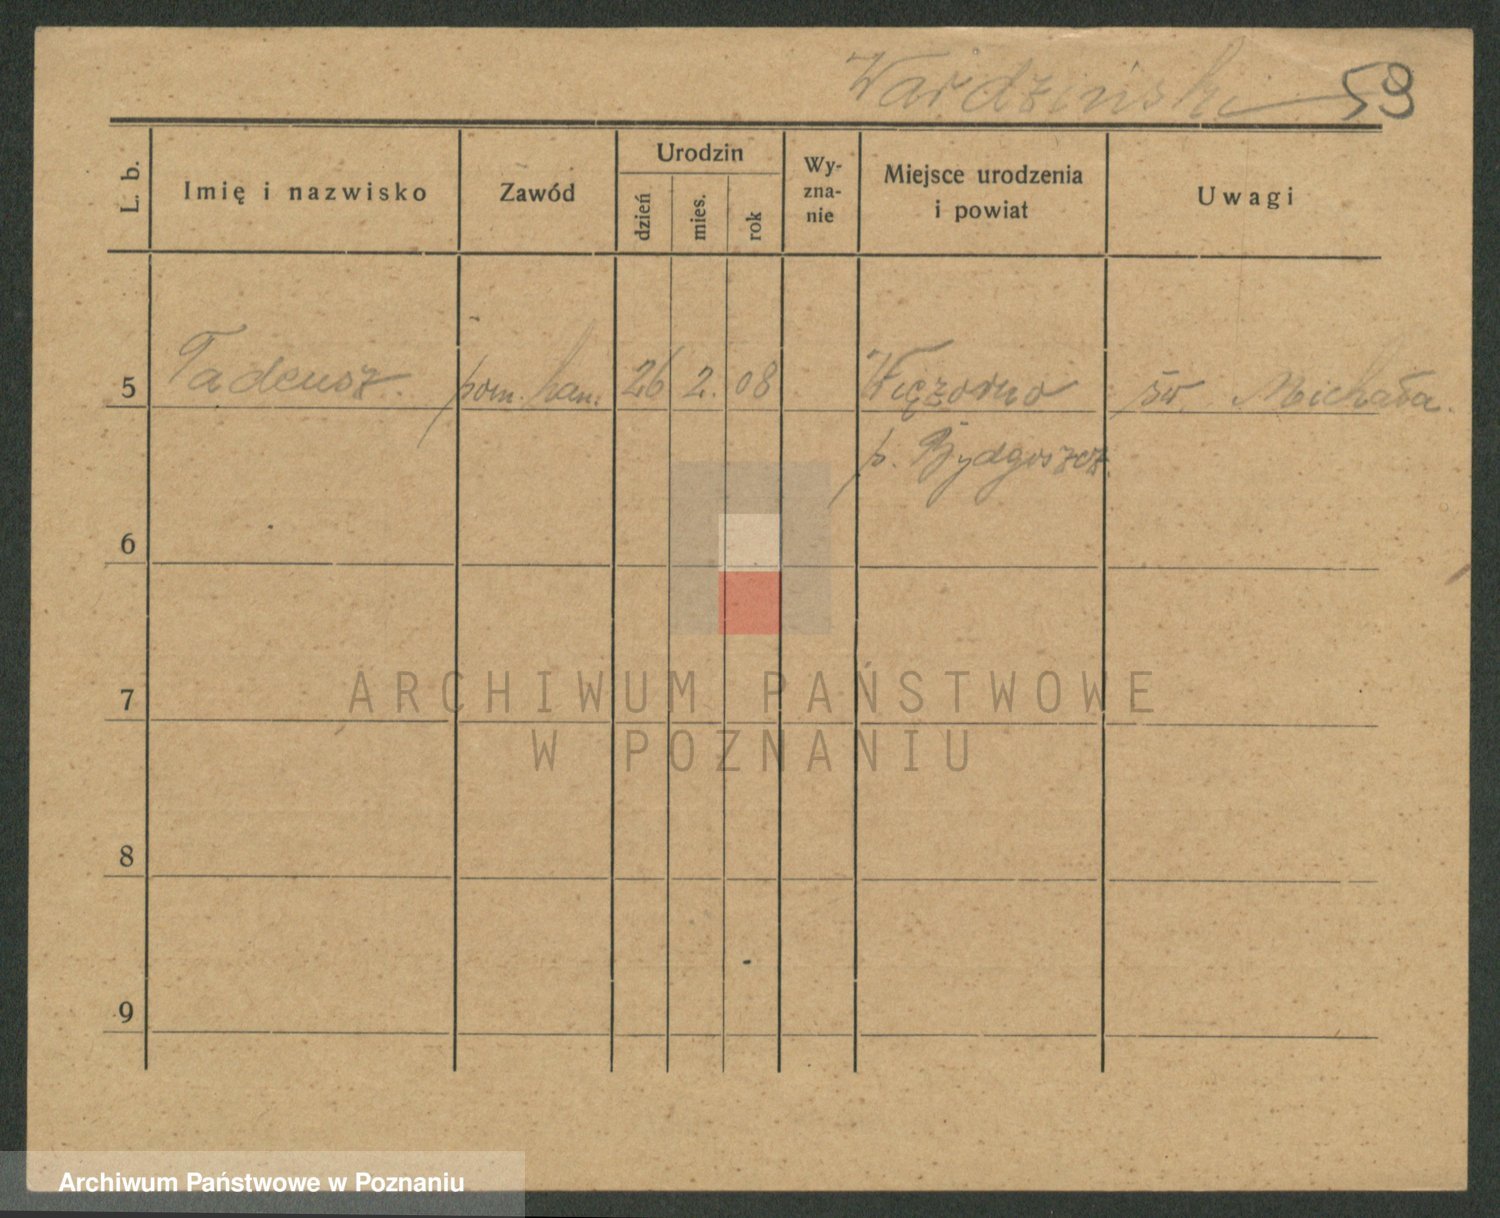 Wardziński 59
L. b.
Imię i nazwisko
Zawód
Urodzin
dzień
mies.
rok
Wy-
zna-
nie
Miejsce urodzenia
i powiat
Uwagi
5 Tadeusz. pom. han. 26 2. 08 św. Michała.
p. Bydgoszcz.
6
7
8
9
ARCHIWUM PAŃSTWOWE
W POZNANIU
Archiwum Państwowe w Poznaniu